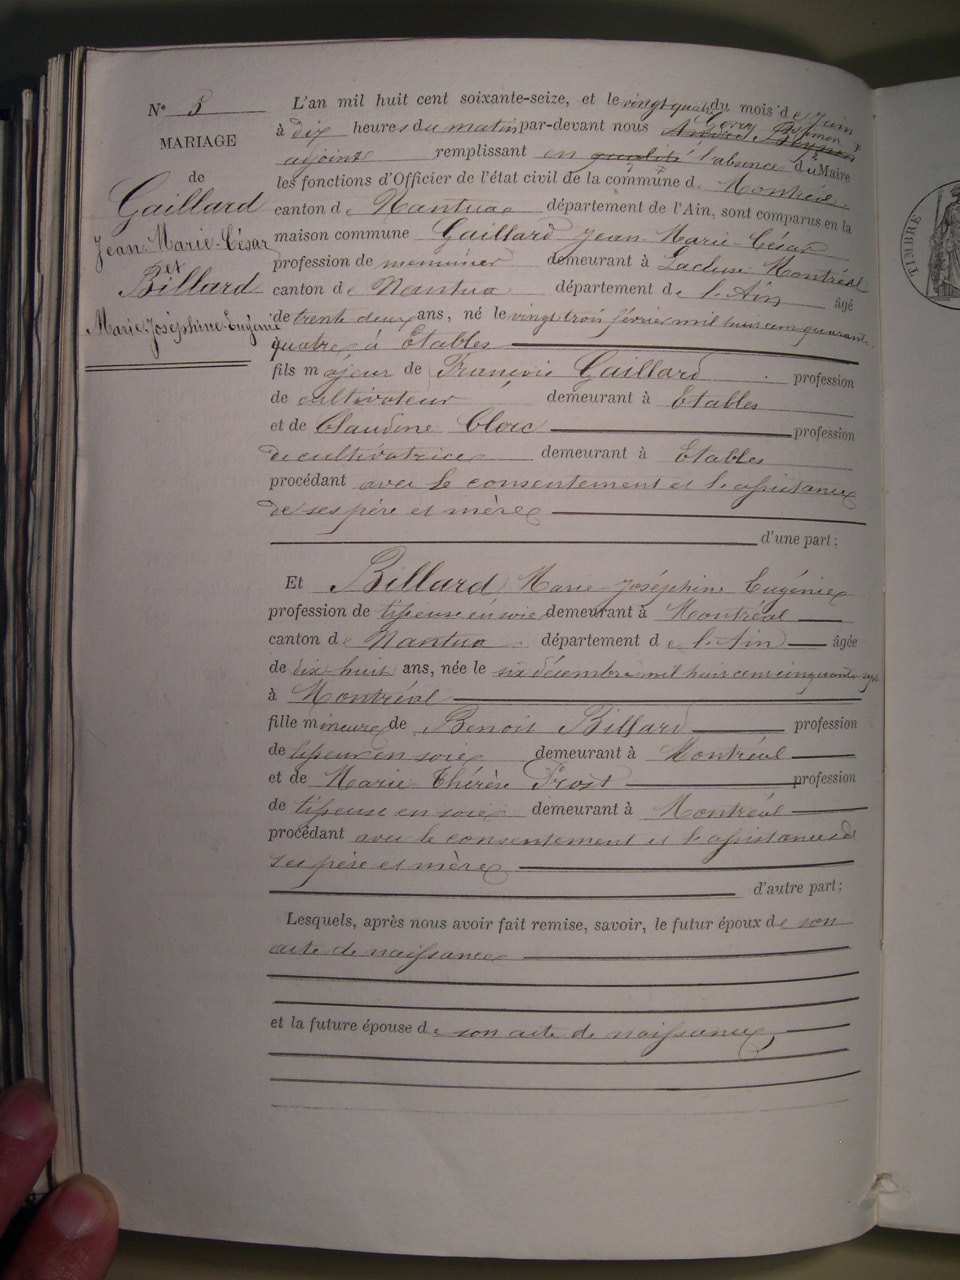 N° 5
MARIAGE
de
Gaillard
Jean Marie-César
et
Billard
Marie-Joséphine-Eugénie
L'an mil huit cent soixante-seize, et le vingt quatre du mois de Juin
à dix heures du matin par-devant nous
adjoint remplissant en qualité l'absence du Maire
les fonctions d'Officier de l'état civil de la commune de Montréal
canton de Nantua département de l'Ain, sont comparus en la
maison commune Gaillard Jean Marie César
profession de menuisier demeurant à Lacluse Montréal
canton de Nantua département de l'Ain âgé
de trente deux ans, né le vingt trois février mil huit cent quarante
quatre à Etables
fils majeur de François Gaillard profession
de cultivateur demeurant à Etables
et de Claudine Clerc profession
de cultivatrice demeurant à Etables
procédant avec le consentement et l'assistance
de ses père et mère
d'une part;
Et Billard Marie Joséphine Eugénie
profession de tisseuse en soie demeurant à Montréal
canton de Nantua département de l'Ain âgée
de dix huit ans, née le six décembre mil huit cent cinquante sept
à Montréal
fille mineure de Benoit Billard profession
de tisseur en soie demeurant à Montréal
et de Marie Thérèse Prost profession
de tisseuse en soie demeurant à Montréal
procédant avec le consentement et l'assistance de
ses père et mère
d'autre part;
Lesquels, après nous avoir fait remise, savoir, le futur époux de son
acte de naissance
et la future épouse de son acte de naissance,
TIMBRE